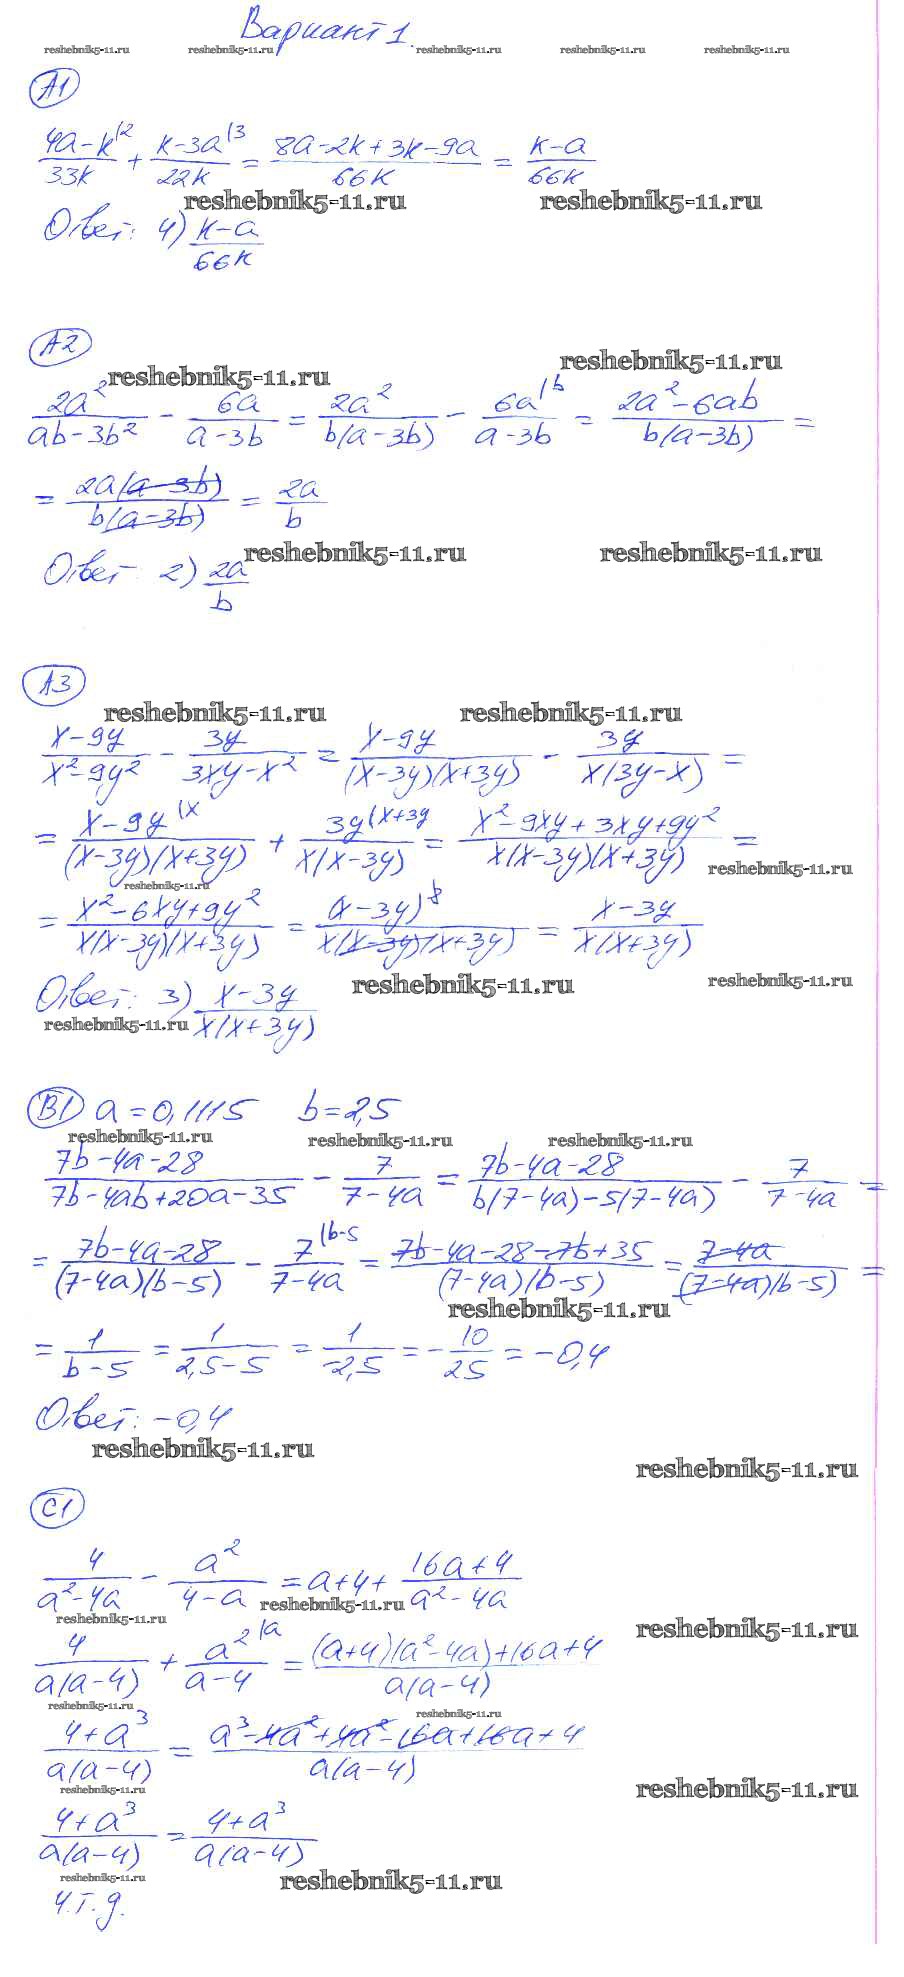 Вариант 1.
reshebnik5-11.ru reshebnik5-11.ru reshebnik5-11.ru reshebnik5-11.ru reshebnik5-11.ru
А1
(4a-k)/(33k) |2 + (k-3a)/(22k) |3 = (8a-2k+3k-9a)/(66k) = (k-a)/(66k)
reshebnik5-11.ru reshebnik5-11.ru
Ответ: 4) (k-a)/(66k)
А2
reshebnik5-11.ru reshebnik5-11.ru
2a²/(ab-3b²) - 6a/(a-3b) = 2a²/(b(a-3b)) - 6a/(a-3b) |b = (2a²-6ab)/(b(a-3b)) =
= 2a(a-3b)/(b(a-3b)) = 2a/b
reshebnik5-11.ru reshebnik5-11.ru
Ответ: 2) 2a/b
А3
reshebnik5-11.ru reshebnik5-11.ru
(x-9y)/(x²-9y²) - 3y/(3xy-x²) = (x-9y)/((x-3y)(x+3y)) - 3y/(x(3y-x)) =
= (x-9y)/((x-3y)(x+3y)) |x + 3y/(x(x-3y)) |x+3y = (x²-9xy+3xy+9y²)/(x(x-3y)(x+3y)) =
reshebnik5-11.ru reshebnik5-11.ru
= (x²-6xy+9y²)/(x(x-3y)(x+3y)) = (x-3y)²/(x(x-3y)(x+3y)) = (x-3y)/(x(x+3y))
reshebnik5-11.ru reshebnik5-11.ru
Ответ: 3) (x-3y)/(x(x+3y))
reshebnik5-11.ru
В1 a=0,1115 b=2,5
reshebnik5-11.ru reshebnik5-11.ru reshebnik5-11.ru
(7b-4a-28)/(7b-4ab+20a-35) - 7/(7-4a) = (7b-4a-28)/(b(7-4a)-5(7-4a)) - 7/(7-4a) =
= (7b-4a-28)/((7-4a)(b-5)) - 7/(7-4a) |b-5 = (7b-4a-28-7b+35)/((7-4a)(b-5)) = (7-4a)/((7-4a)(b-5)) =
reshebnik5-11.ru
= 1/(b-5) = 1/(2,5-5) = 1/(-2,5) = -10/25 = -0,4
Ответ: -0,4
reshebnik5-11.ru reshebnik5-11.ru
С1
4/(a²-4a) - a²/(4-a) = a+4+ (16a+4)/(a²-4a)
reshebnik5-11.ru reshebnik5-11.ru reshebnik5-11.ru
4/(a(a-4)) + a²/(a-4) |a = ((a+4)(a²-4a)+16a+4)/(a(a-4))
reshebnik5-11.ru reshebnik5-11.ru
(4+a³)/(a(a-4)) = (a³-4a²+4a²-16a+16a+4)/(a(a-4))
reshebnik5-11.ru reshebnik5-11.ru
(4+a³)/(a(a-4)) = (4+a³)/(a(a-4))
reshebnik5-11.ru reshebnik5-11.ru
Ч.Т.Д.